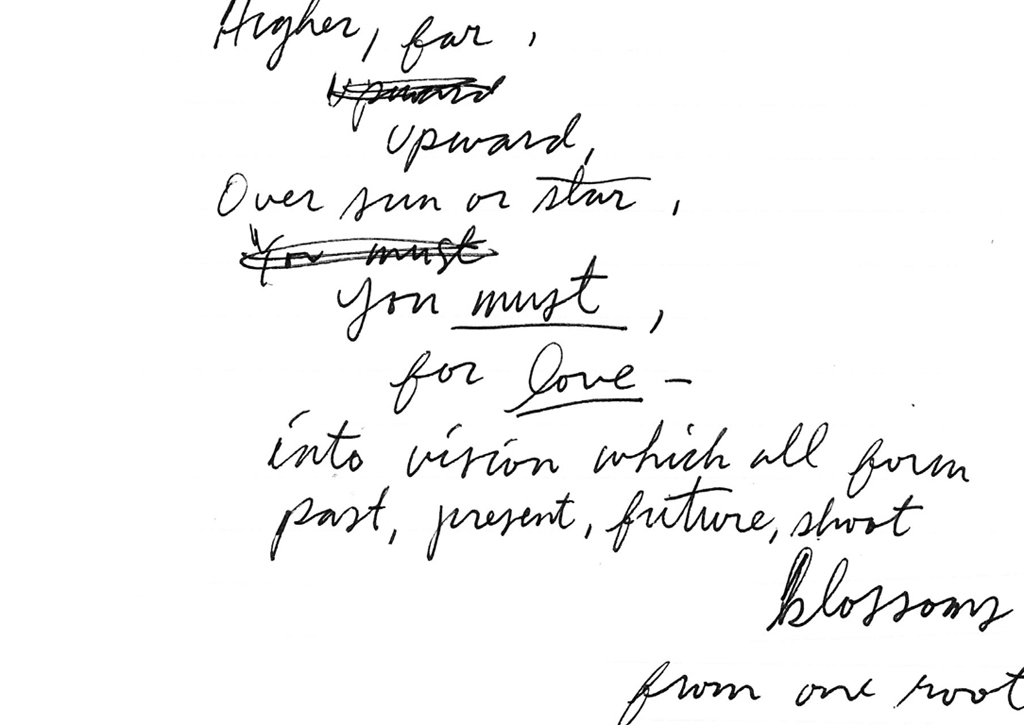 Higher, far,
Upward
Upward,
Over sun or star,
"You must
You must,
for love –
into vision which all form
past, present, future, shoot
blossoms
from one root